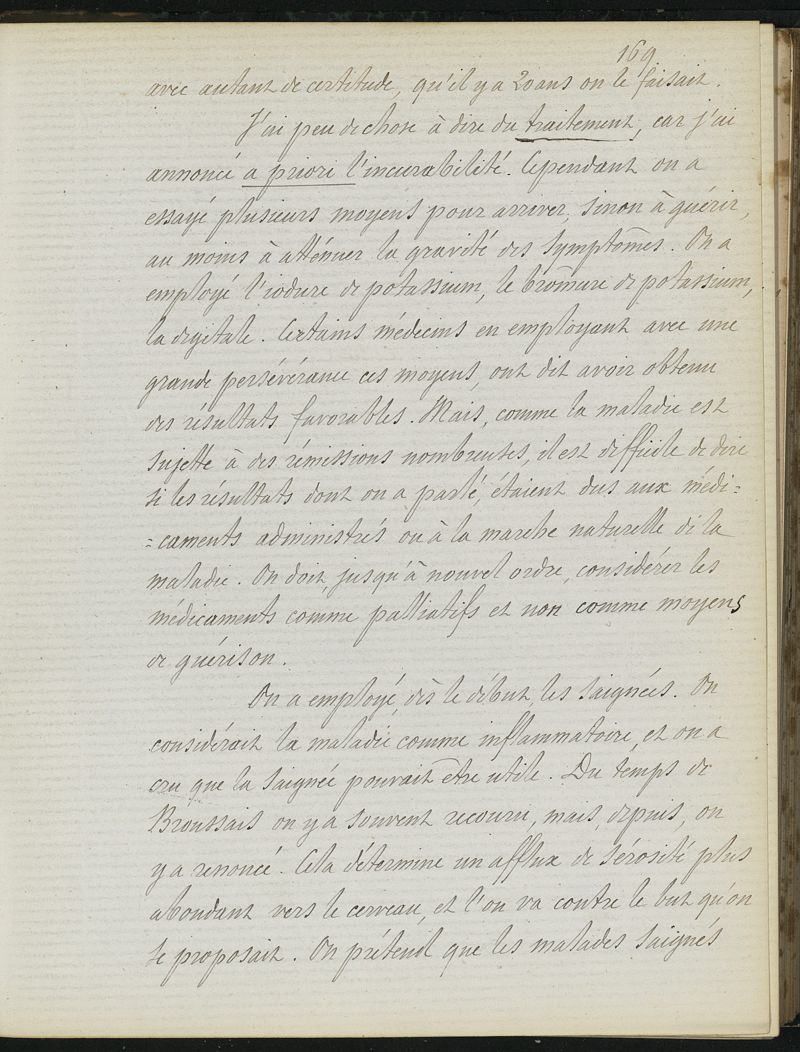 169
avec autant de certitude, qu'il y a 20 ans on le faisait.
J'ai peu de chose à dire du traitement, car j'ai
annoncé a priori l'incurabilité. Cependant on a
essayé plusieurs moyens pour arriver, sinon à guérir,
au moins à atténuer la gravité des symptômes. On a
employé l'iodure de potassium, le brômure de potassium,
la digitale. Certains médecins en employant avec une
grande persévérance ces moyens, ont dit avoir obtenu
des résultats favorables. Mais, comme la maladie est
sujette à des rémissions nombreuses, il est difficile de dire
si les résultats dont on a parlé, étaient dus aux médi=
=caments administrés ou à la marche naturelle de la
maladie. On doit, jusqu'à nouvel ordre, considérer les
médicaments comme palliatifs et non comme moyens
de guérison.
On a employé, dès le début, les saignées. On
considérait la maladie comme inflammatoire, et on a
cru que la saignée pouvait être utile. Du temps de
Broussais on y a souvent recouru, mais, depuis, on
y a renoncé. Cela détermine un afflux de sérosité plus
abondant vers le cerveau, et l'on va contre le but qu'on
se proposait. On prétend que les malades saignés